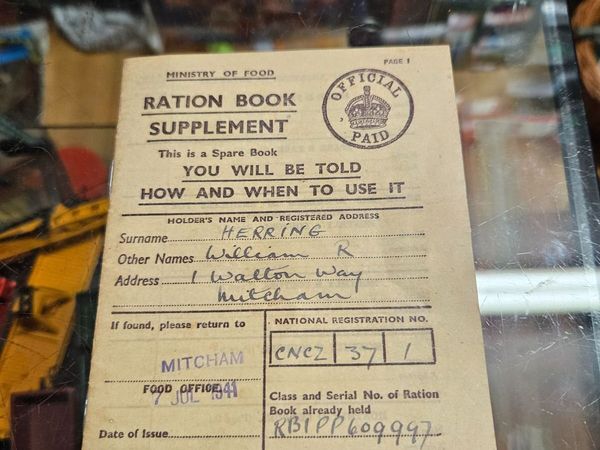 PAGE 1
MINISTRY OF FOOD
OFFICIAL PAID
RATION BOOK
SUPPLEMENT
This is a Spare Book
YOU WILL BE TOLD
HOW AND WHEN TO USE IT
HOLDER'S NAME AND REGISTERED ADDRESS
Surname HERRING
Other Names William R
Address 1 Walton Way
Mitcham
If found, please return to
MITCHAM
FOOD OFFICE.
7 JUL 1941
Date of Issue
NATIONAL REGISTRATION NO.
CNCZ 37 1
Class and Serial No. of Ration
Book already held
RB1PP609997